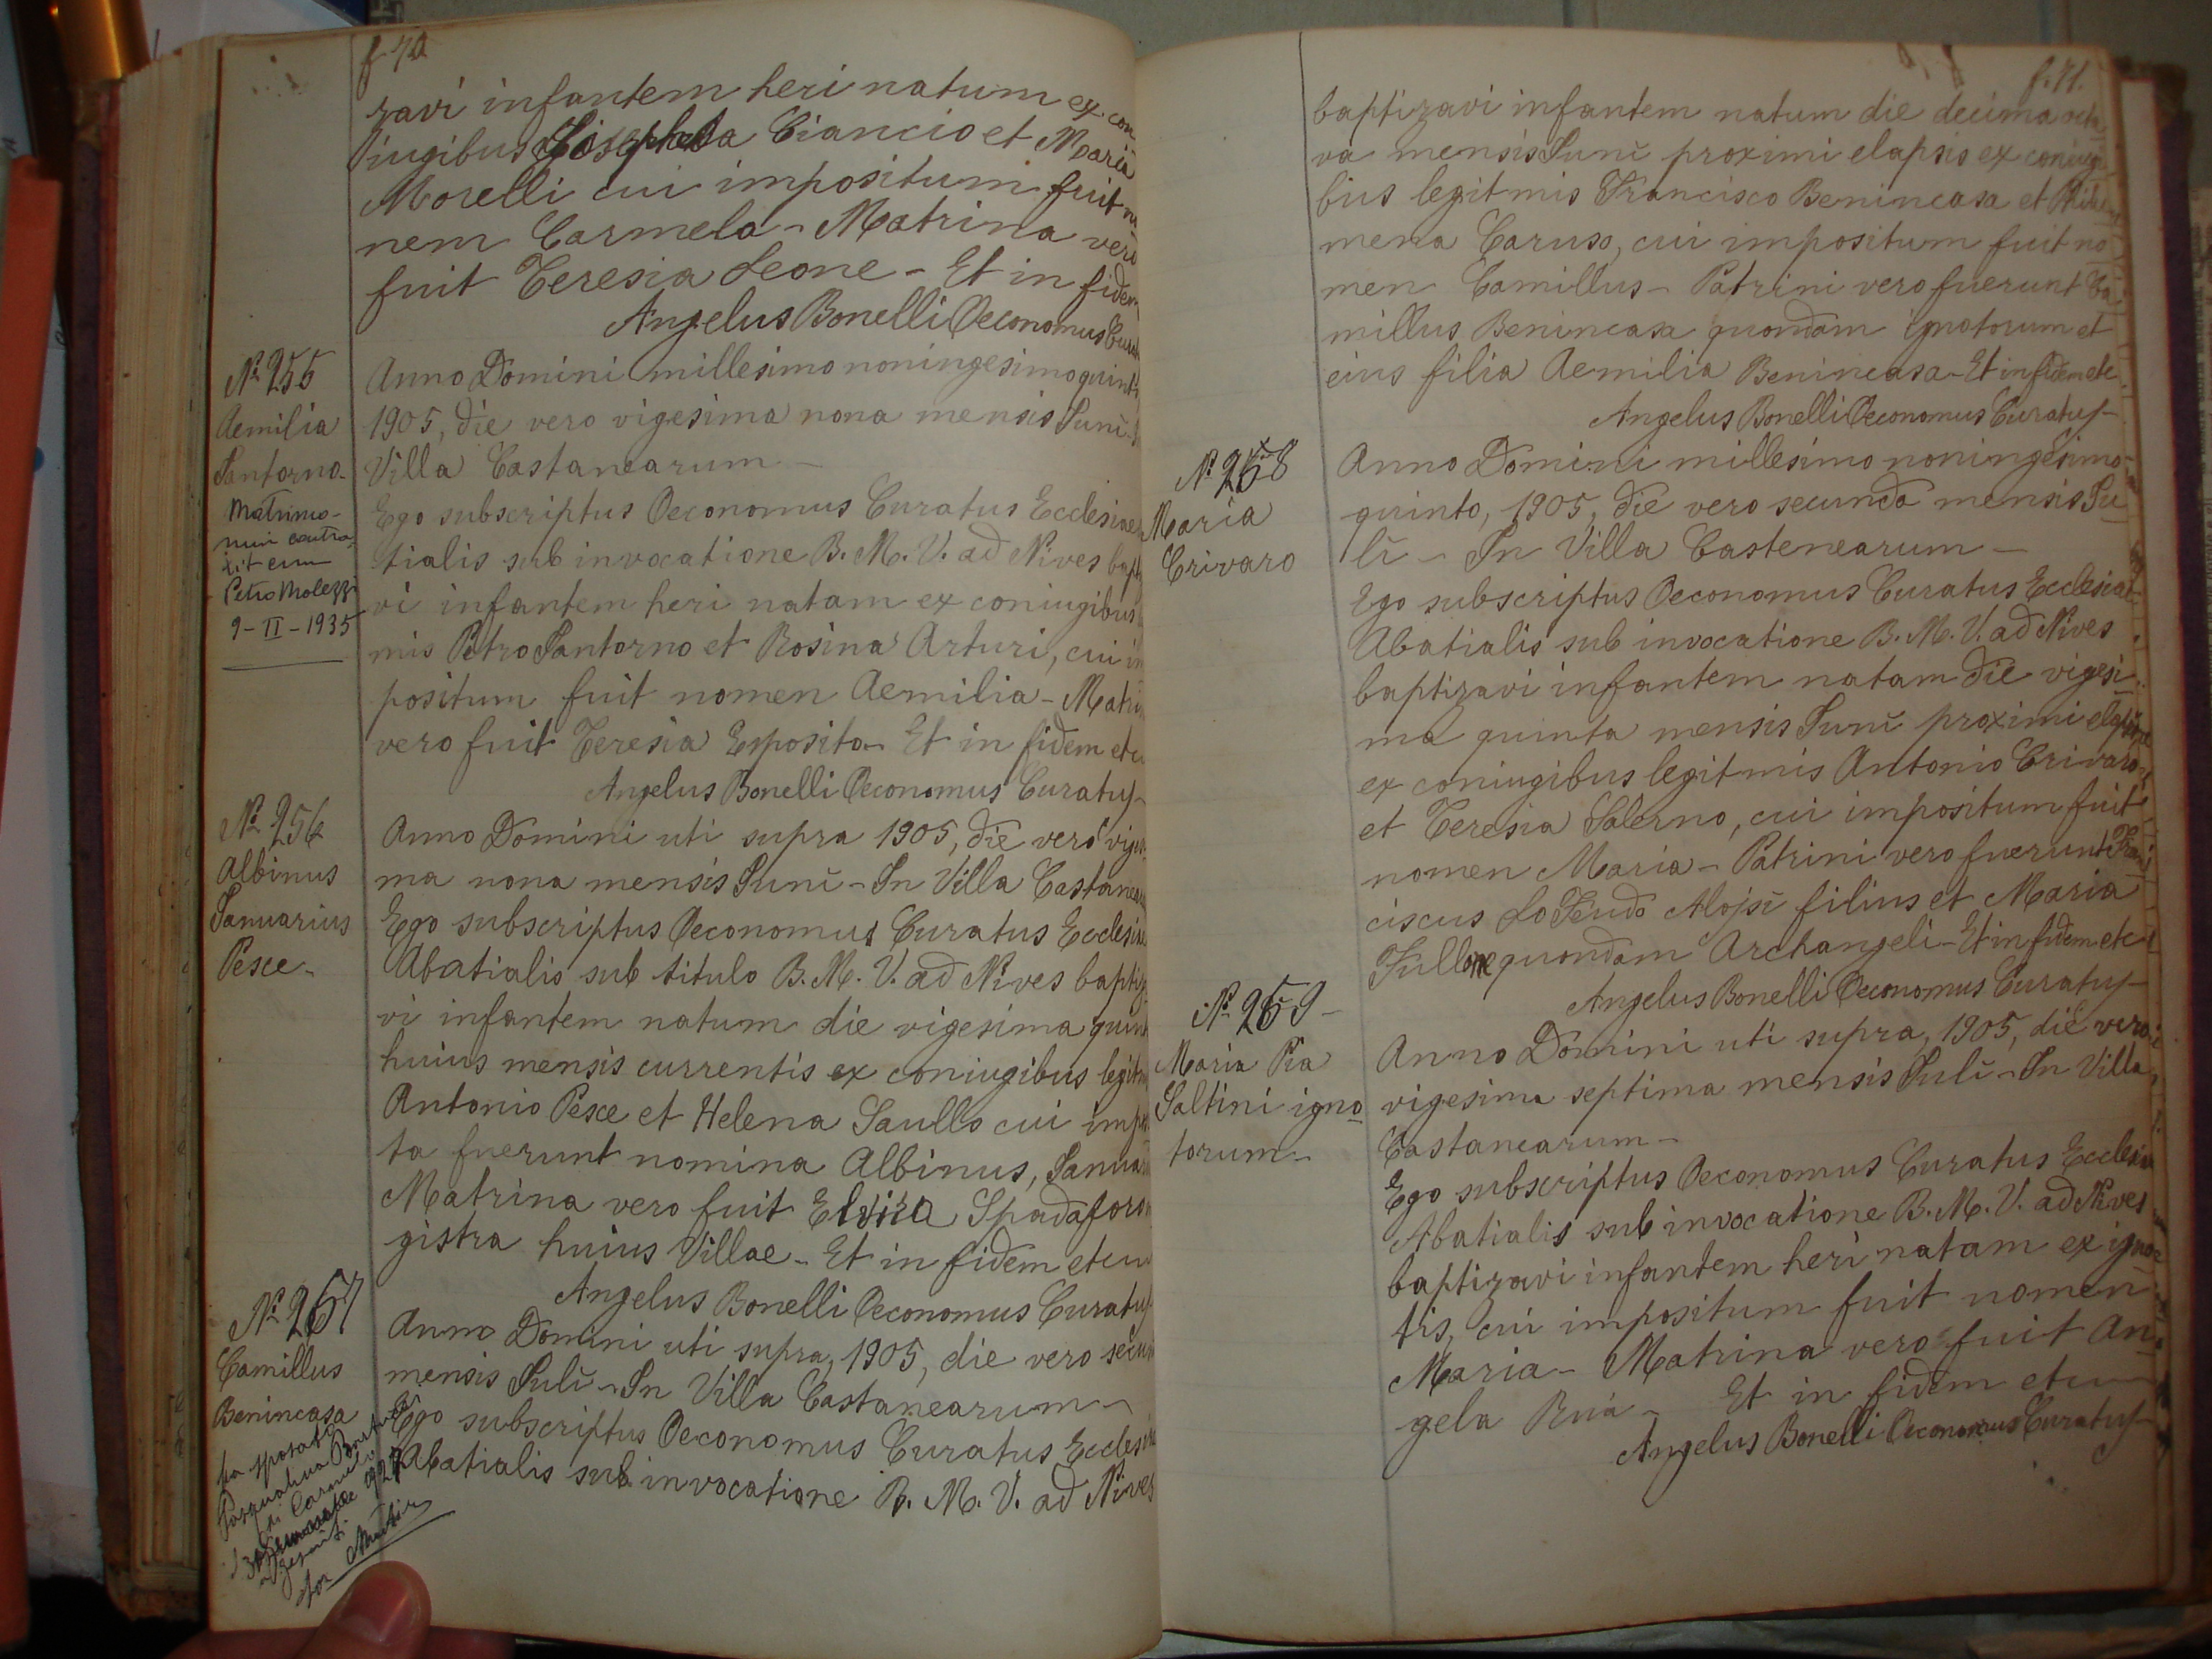 f. 70
zavi infantem heri natum ex con
iugibus Ciancio et Maria
Morelli cui impositum fuit no
nem Carmela - Matrina vero
fuit Teresia Leone - Et in fidem
Angelus Bonelli Oeconomus Curat
Nº 255
Aemilia
Santorno-
Matrimo-
nium contra-
xit cum
Petro Molezzi
9-II-1935
Anno Domini millesimo noningesimo quint
1905, die vero vigesima nona mensis Junii
Villa Castanearum -
Ego subscriptus Oeconomus Curatus Ecclesiae
tialis sub invocatione B. M. V. ad Nives bapt
vi infantem heri natam ex coniugibus
mis Petro Santorno et Rosina Arturi, cui im
positum fuit nomen Aemilia - Matrin
vero fuit Teresia Esposito - Et in fidem etc
Angelus Bonelli Oeconomus Curatus-
Nº 256
Albinus
Januarius
Pesce-
Anno Domini uti supra 1905, die vero viges
ma nona mensis Junii - In Villa Castanear
Ego subscriptus Oeconomus Curatus Ecclesiae
Abatialis sub titulo B. M. V. ad Nives baptiz
vi infantem natum die vigesima quint
huius mensis currentis ex coniugibus legitm
Antonio Pesce et Helena Saullo cui impo
ta fuerunt nomina Albinus, Januar
Matrina vero fuit Elvira Spadafora
gistra huius Villae - Et in fidem etc
Angelus Bonelli Oeconomus Curatus
Nº 257
Camillus
Benincasa
ha sposato
Pasqualina
di Carmelo
Anno Domini uti supra, 1905, die vero secun
mensis Julii - In Villa Castanearum -
Ego subscriptus Oeconomus Curatus Ecclesiae
Abatialis sub invocatione B. M. V. ad Nives
f. 71.
baptizavi infantem natum die decima octa
va mensis Junii proximi elapsis ex coniugi
bus legitmis Francisco Benincasa et Philu
mena Caruso, cui impositum fuit no
men Camillus - Patrini vero fuerunt Ca
millus Benincasa quondam ignotorum et
eius filia Aemilia Benincasa - Et in fidem etc
Angelus Bonelli Oeconomus Curatus-
Nº 258
Maria
Crivaro
Anno Domini millesimo noningesimo
quinto, 1905, die vero secunda mensis Ju
lii - In Villa Castenearum -
Ego subscriptus Oeconomus Curatus Ecclesiae
Abatialis sub invocatione B. M. V. ad Nives
baptizavi infantem natam die vigesi
ma quinta mensis Junii proximi elapsi
ex coniugibus legitmis Antonio Crivaro
et Teresia Salerno, cui impositum fuit
nomen Maria - Patrini vero fuerunt Fran
ciscus Lo Feudo Alojsii filius et Maria
Fullone quondam Archangeli - Et in fidem etc
Angelus Bonelli Oeconomus Curatus-
Nº 259-
Maria Pia
Saltini igno
torum-
Anno Domini uti supra, 1905, die vero
vigesima septima mensis Julii - In Villa
Castanearum -
Ego subscriptus Oeconomus Curatus Ecclesiae
Abatialis sub invocatione B. M. V. ad Nives
baptizavi infantem heri natam ex igno
tis, cui impositum fuit nomen
Maria - Matrina vero fuit An
gela Pria - Et in fidem etc
Angelus Bonelli Oeconomus Curatus-